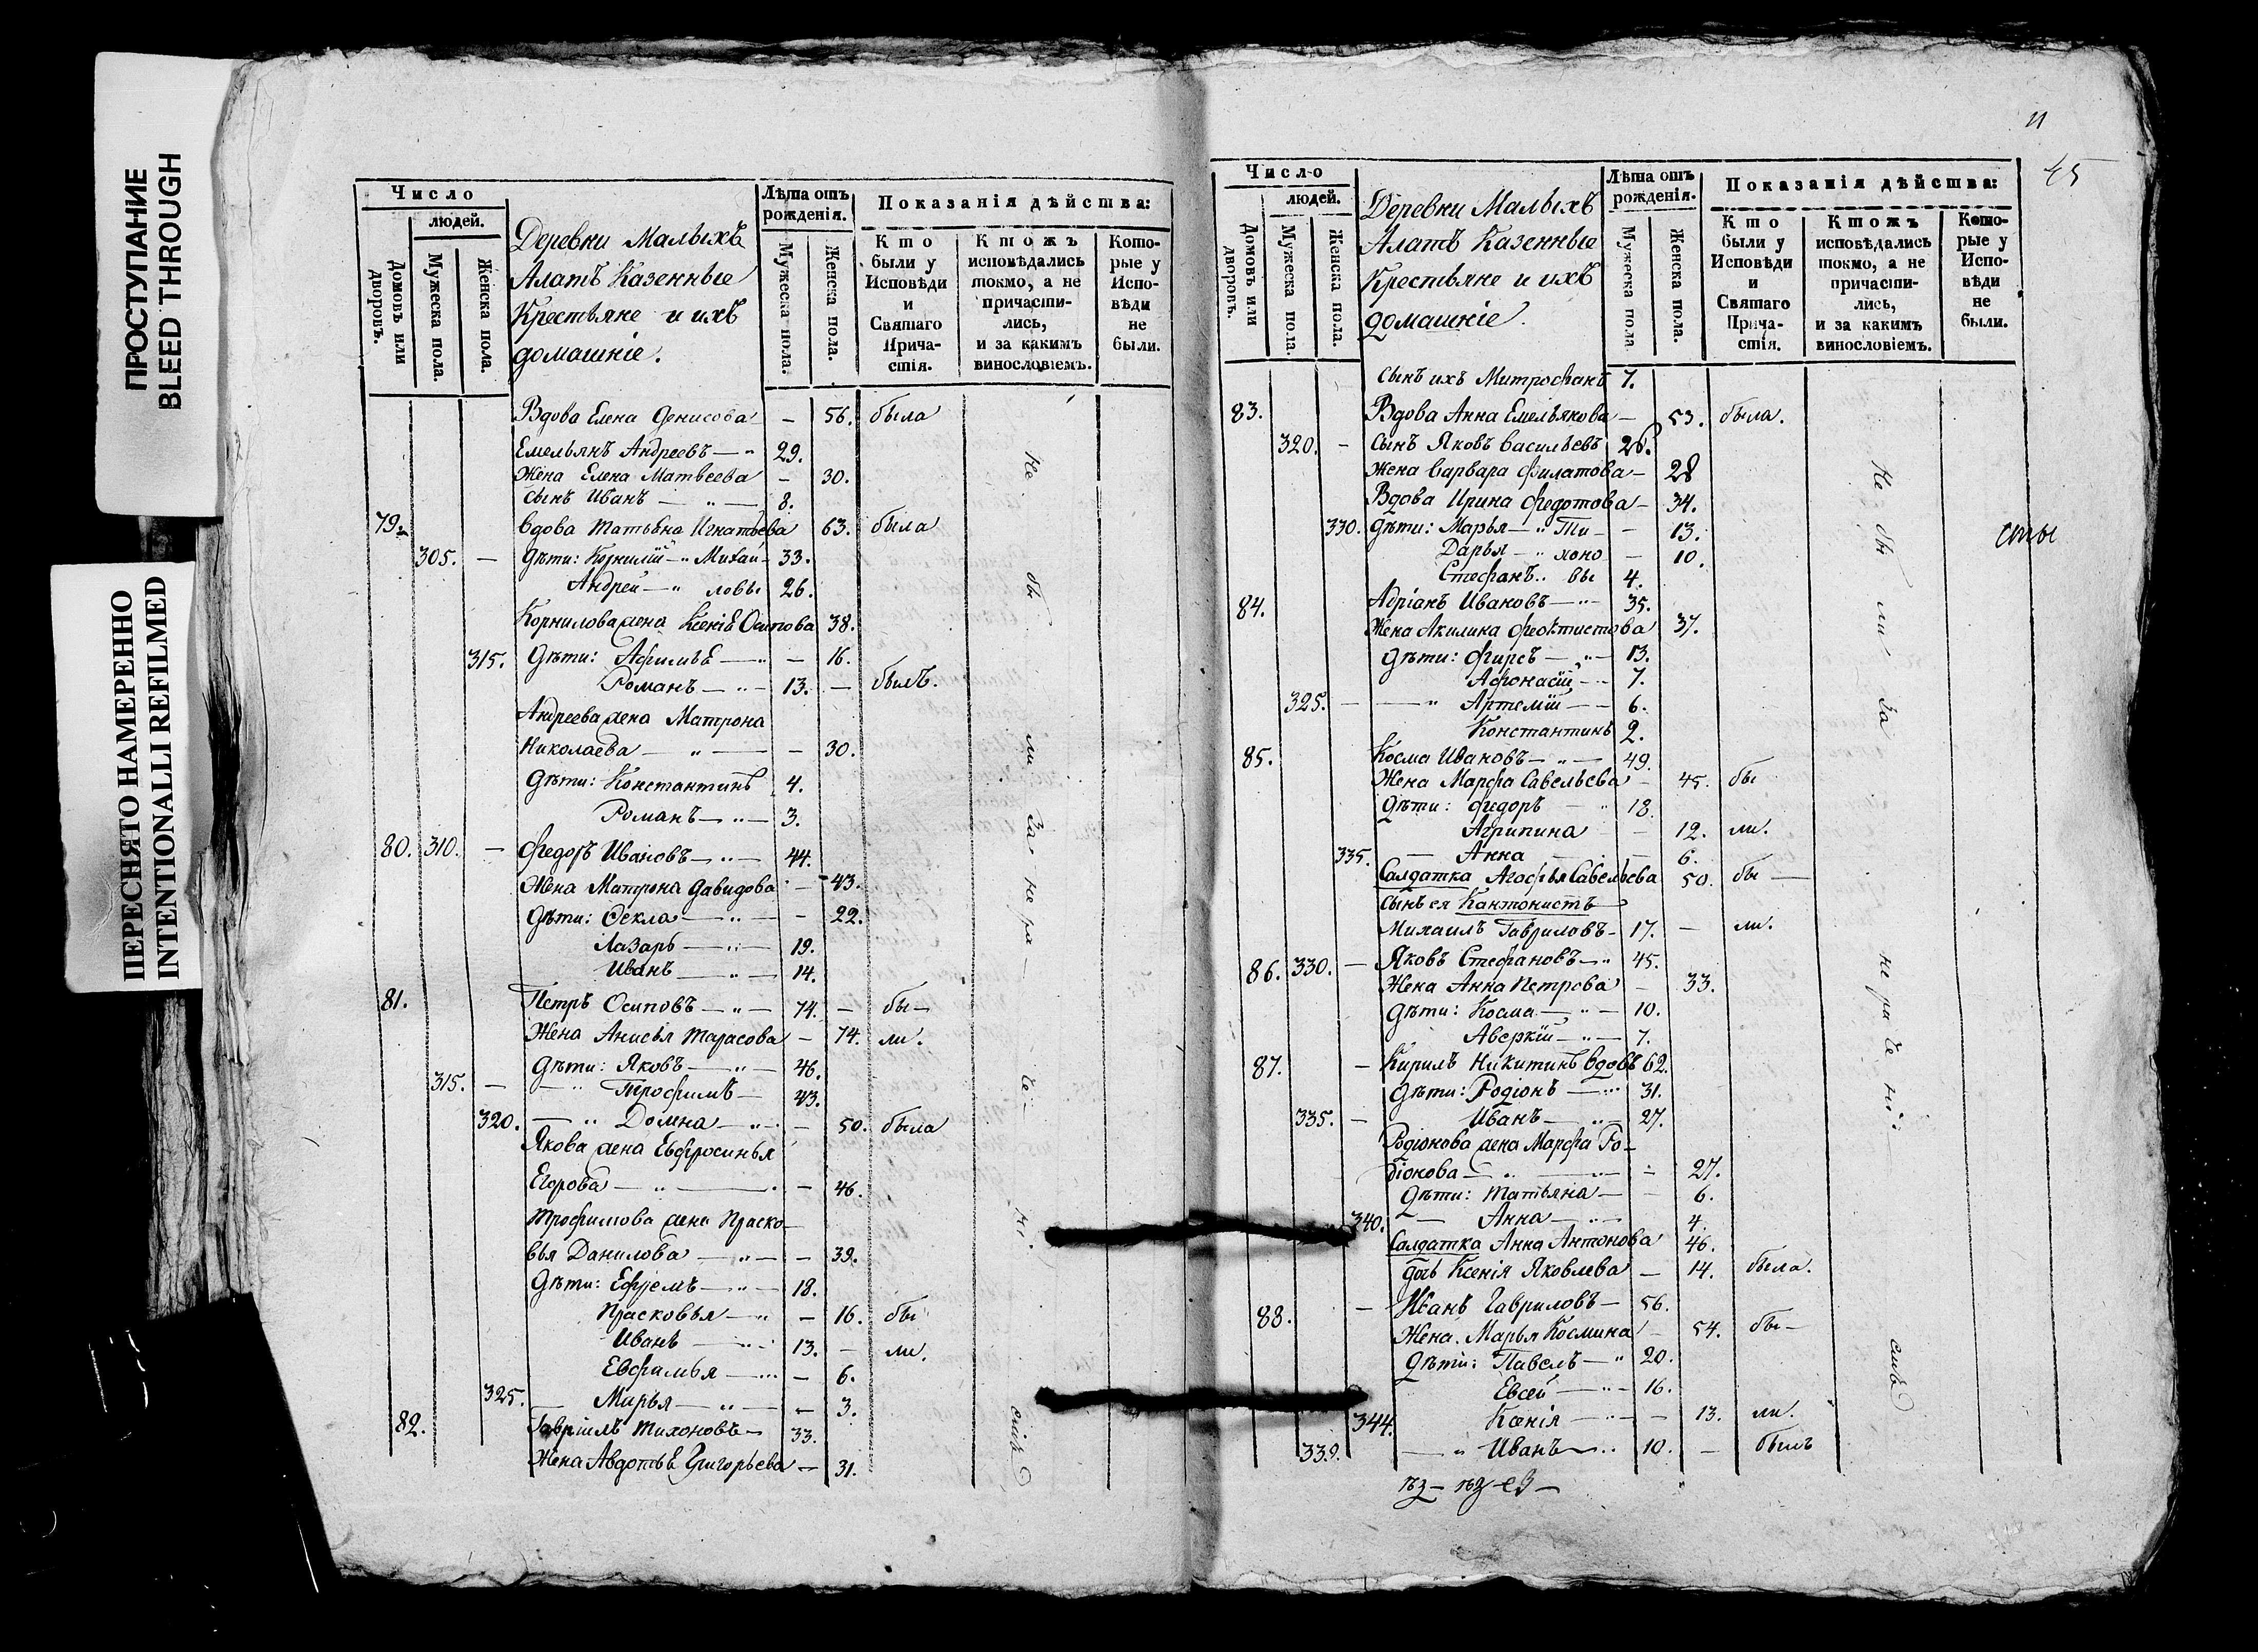 ПРОСТУПАНИЕ
BLEED THROUGH
ПЕРЕСНЯТО НАМЕРЕННО
INTENTIONALLI REFILMED
Число
людей.
Домовъ или дворовъ.
Мужеска пола.
Женска пола.
Деревни Малыхъ
Алатъ Казенные
Крестьяне и ихъ
домашніе.
Лѣта отъ рожденія.
Мужеска пола.
Женска пола.
Показанія дѣйства:
Кто были у Исповѣди и Святаго Прича-стія.
Ктожъ исповѣдались токмо, а не причасти-лись, и за какимъ винословіемъ.
Кото-рые у Испо-вѣди не были.
Вдова Елена Денисова — 56. была
Емельянъ Андреевъ — 29.
Жена Елена Матвеева — 30.
сынъ Иванъ — 8.
79. Вдова Татьяна Игнатьева 63. была
305. — Дѣти: Корнилій — Михаи- 33.
Андрей — ловы 26.
Корнилова жена Ксенія Осипова 38.
315. Дѣти: — 16.
Романъ — 13. — былъ.
Андреева жена Матрона
Николаева — 30.
Дѣти: Константинъ 4.
Романъ — 3.
80. 310. — Федоръ Ивановъ — 44.
Жена Матрона Давидова — 43.
Дѣти: Фекла — 22.
Лазарь — 19.
Иванъ — 14.
81. Петръ Осиповъ — 74. — бы-
Жена Анисья Тарасова — 74. ли.
Дѣти: Яковъ — 46.
315. — Трофимъ — 43.
320. — Домна — 50. была
Якова жена Евфросинья
Егорова — 46.
Трофимова жена Праско-
вья Данилова — 39.
Дѣти: Ефремъ — 18.
Прасковья — 16. бы
Иванъ — 13. — ли.
Евфимья — 6.
325. — Марья — 3.
82. Гавріилъ Тихоновъ — 33.
Жена Авдотья Григорьева — 31.
Не бы ли за не ра- че- ні- емъ
11
45
Число
людей.
Домовъ или дворовъ.
Мужеска пола.
Женска пола.
Деревни Малыхъ
Алатъ Казенные
Крестьяне и ихъ
домашніе.
Лѣта отъ рожденія.
Мужеска пола
Женска пола.
Показанія дѣйства:
Кто были у Исповѣди и Святаго Прича-стія.
Ктожъ исповѣдались токмо, а не причасти-лись, и за какимъ винословіемъ.
Кото-рые у Испо-вѣди не были.
сынъ ихъ Митрофанъ 7.
83. Вдова Анна Емельянова — 53. была.
320. — Сынъ Яковъ Васильевъ 26.
Жена Варвара Филатова — 28
Вдова Ирина Федотова — 34.
330. Дѣти: Марья — Ти- — 13.
Дарья — хоно — 10.
Стефанъ вы 4.
84. Адріанъ Ивановъ — 35.
Жена Акилина Феоктистова 37.
Дѣти: Фирсъ — 13.
Афонасій — 7.
325. — Артемій — 6.
Константинъ 2.
85. Косма Ивановъ — 49.
Жена Марфа Савельева — 45. бы
Дѣти: Федоръ — 18.
Агрипина — 12. ли.
335. — Анна — 6.
Салдатка Агафья Савельева 50. бы —
сынъ ея Кантонистъ
Михаилъ Гавриловъ — 17. — ли.
86. 330. — Яковъ Стефановъ — 45.
Жена Анна Петрова — 33.
Дѣти: Косма — 10.
Аверкій — 7.
87. — Кирилъ Никитинъ вдовъ 62.
Дѣти: Родіонъ — 31.
335. — Иванъ — 27.
Родіонова жена Марфа Ро-
діонова — 27.
Дѣти: Татьяна — 6.
340. — Анна — 4.
Салдатка Анна Антонова 46.
дочь Ксенія Яковлева — 14. была.
88. — Иванъ Гавриловъ — 56.
Жена Марья Космина — 54. бы-
Дѣти: Павелъ — 20.
Евсей — 16.
344. Ксенія — 13. ли.
339. — Иванъ — 10. — былъ
Не бы ли за не ра че ні- емъ